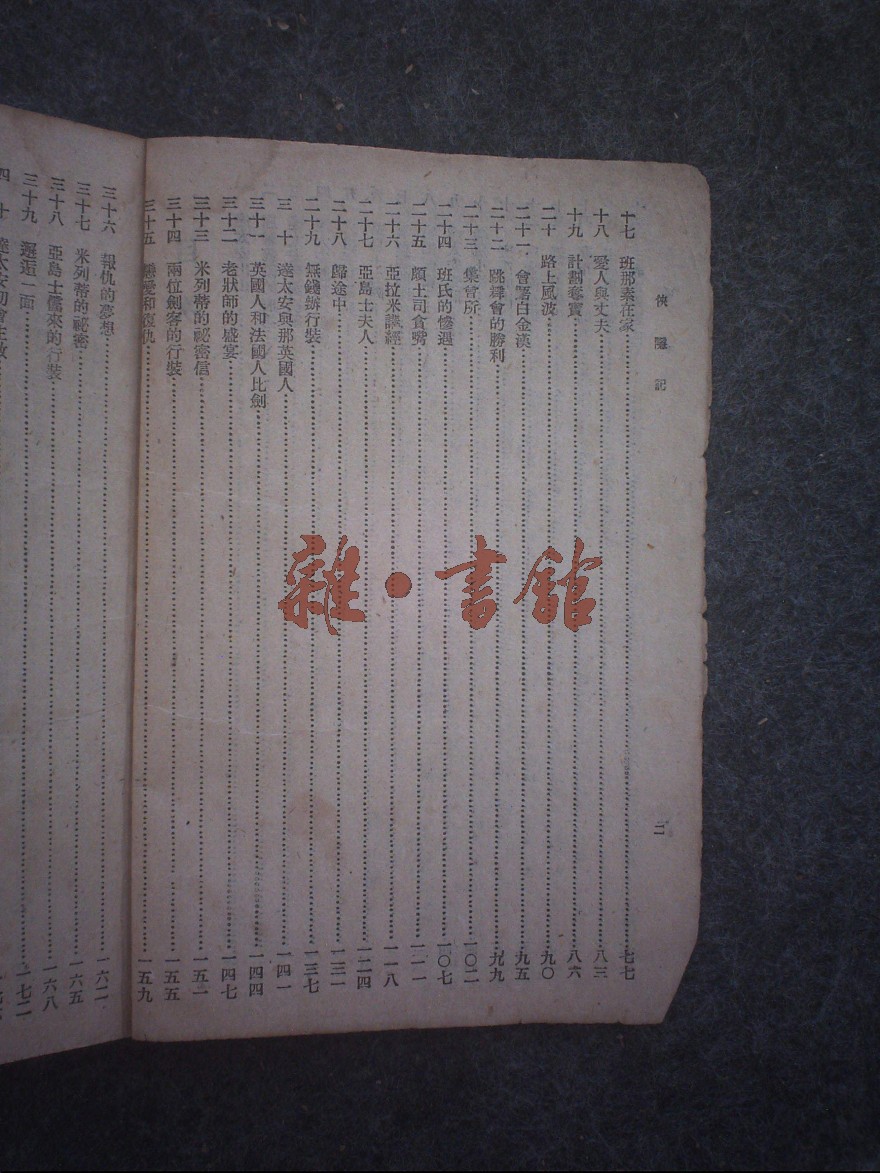 俠隱記
二
十七 班那素在家 七七
十八 愛人與丈夫 八三
十九 計劃奪寶 八六
二十 路上風波 九〇
二十一 會晤白金漢 九五
二十二 跳舞會的勝利 九九
二十三 集會所 一〇二
二十四 班氏的慘遇 一〇七
二十五 頗土司貪嘴
二十六 亞拉米議經 一一八
二十七 亞島士夫人 一二四
二十八 歸途中 一三一
二十九 無錢辦行裝 一三七
三十 達太安與那英國人 一四一
三十一 英國人和法國人比劍 一四四
三十二 老狀師的盛宴 一四七
三十三 米列蒂的祕密信 一五二
三十四 兩位劍客的行裝 一五五
三十五 戀愛和復仇 一五九
三十六 報仇的夢想 一六二
三十七 米列蒂的祕密 一六五
三十八 亞島士儻來的行裝 一六八
三十九 邂逅一面 一七二
四十 達太安初會主教
雜·書館